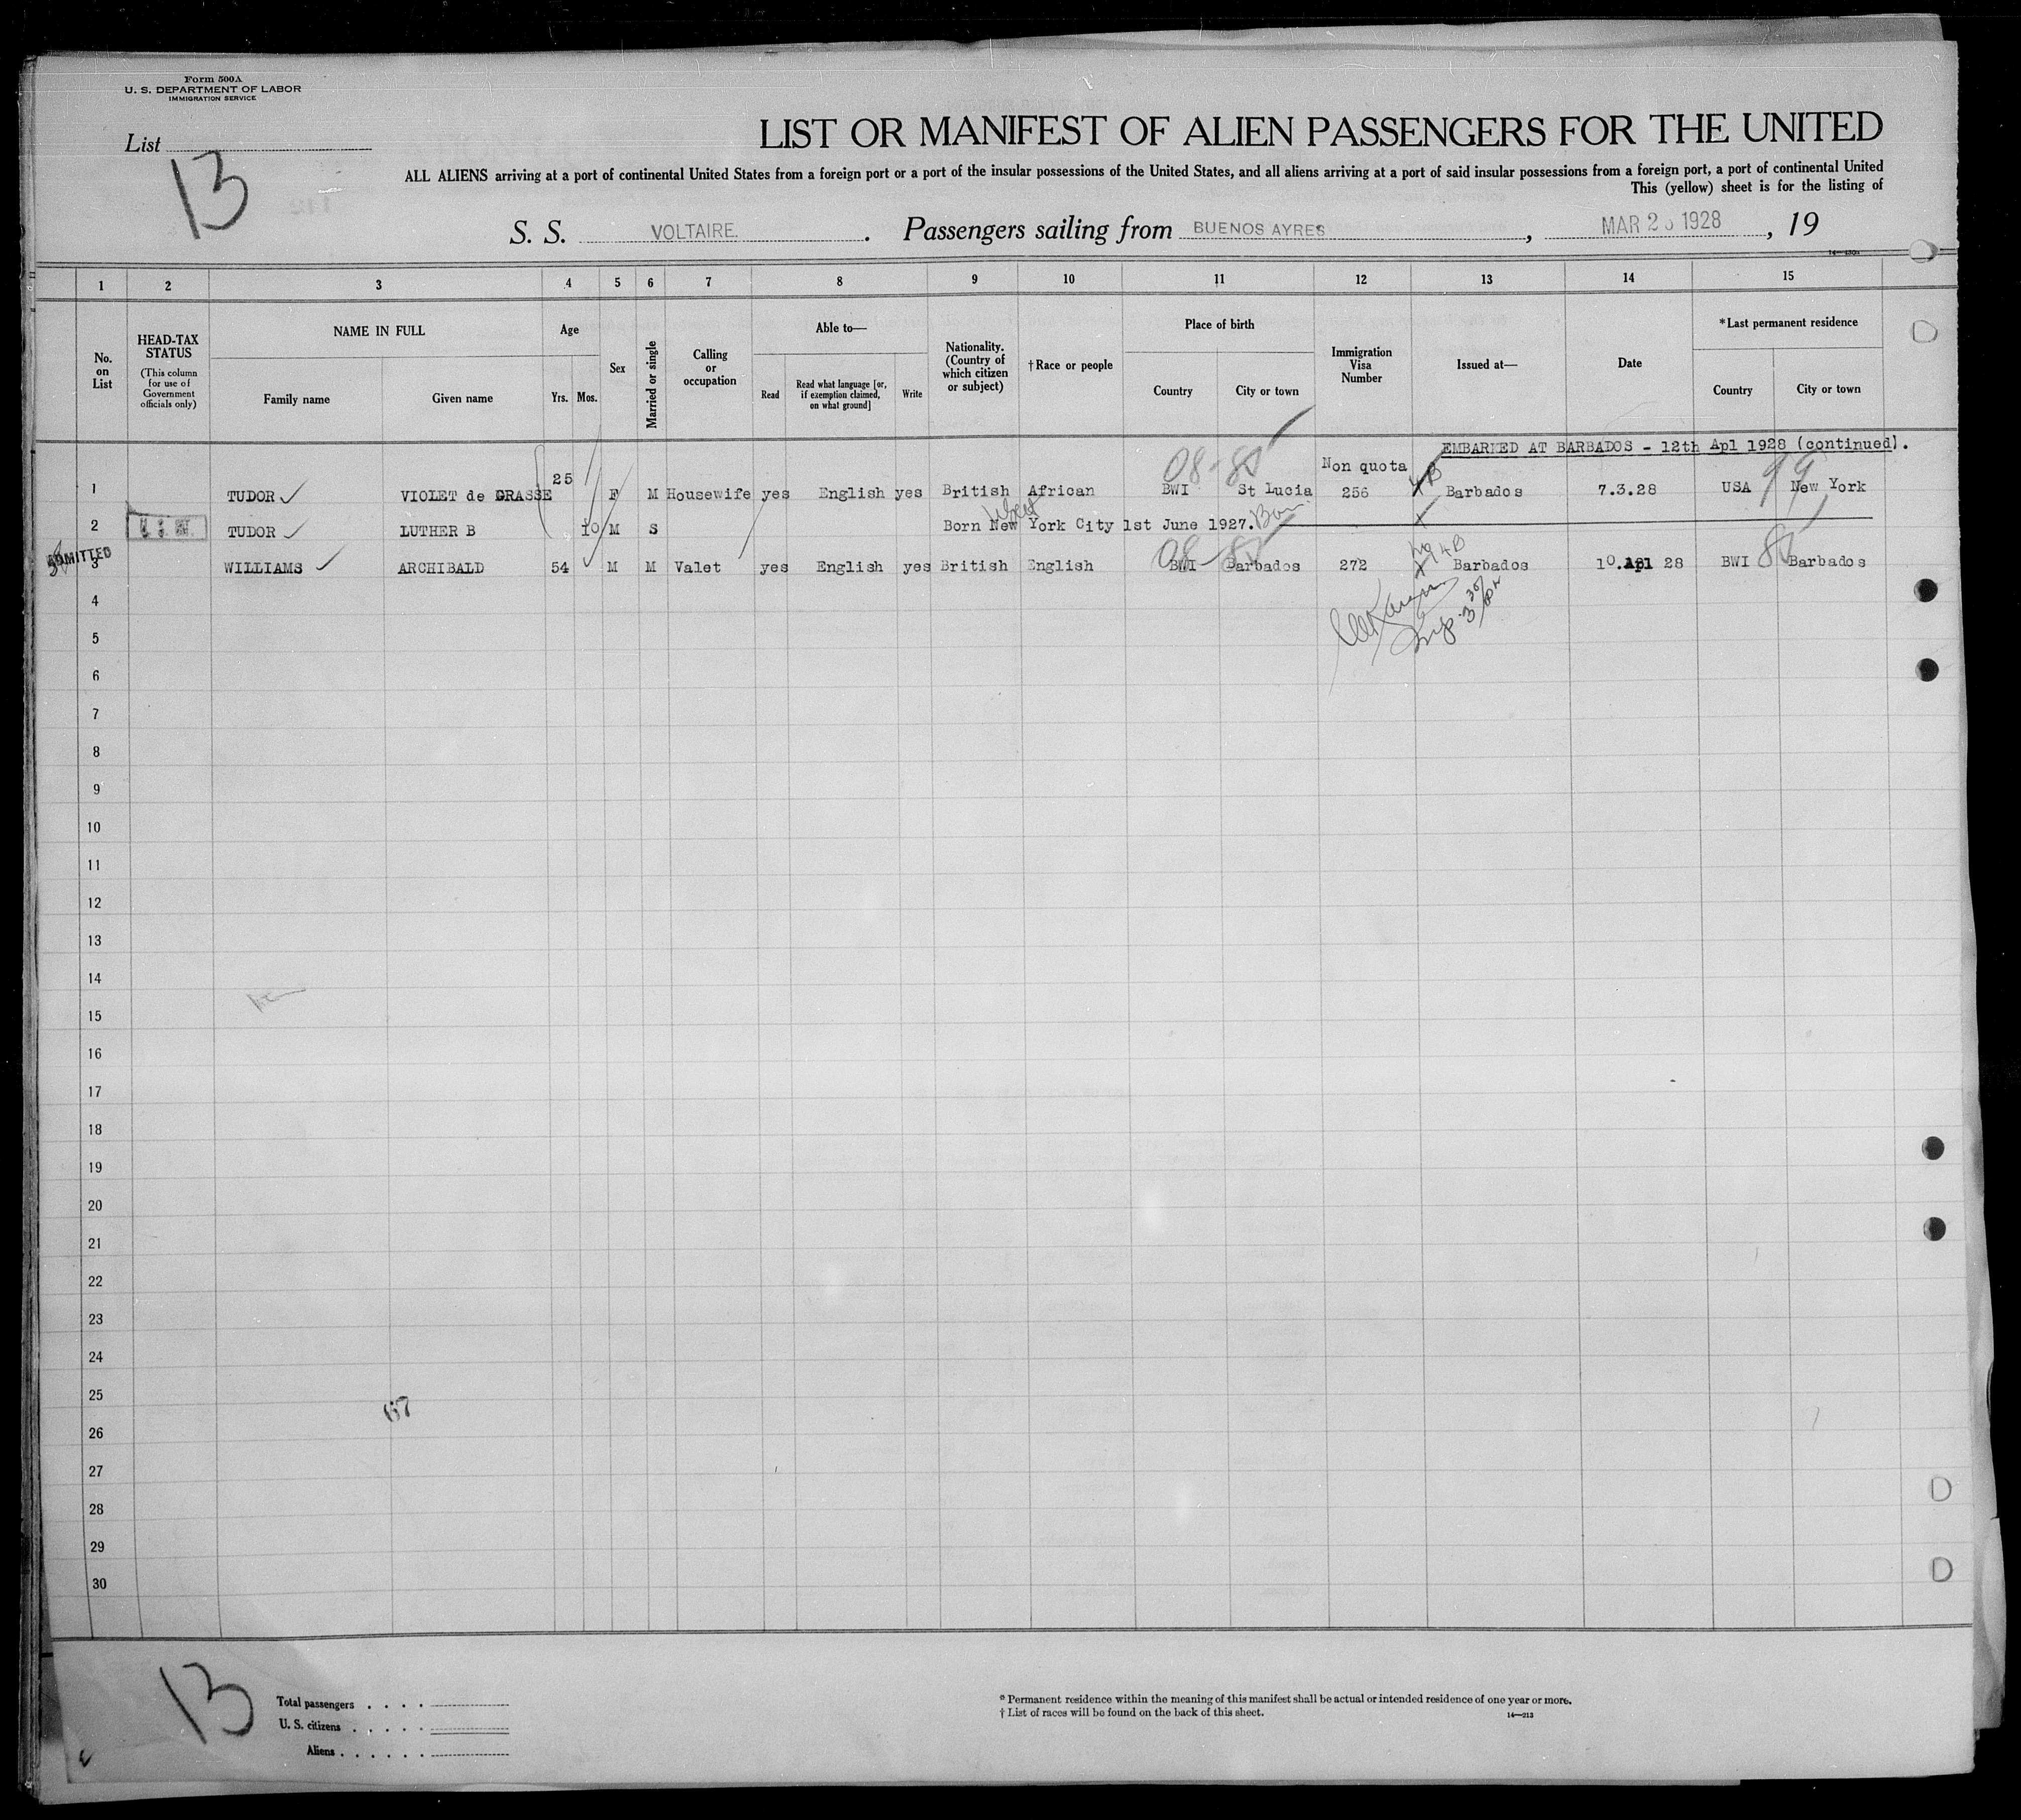 Form 500A
U. S. DEPARTMENT OF LABOR
IMMIGRATION SERVICE
List
13
LIST OR MANIFEST OF ALIEN PASSENGERS FOR THE UNITED
ALL ALIENS arriving at a port of continental United States from a foreign port or a port of the insular possessions of the United States, and all aliens arriving at a port of said insular possessions from a foreign port, a port of continental United
This (yellow) sheet is for the listing of
S. S. VOLTAIRE. Passengers sailing from BUENOS AYRES, MAR 1928, 19
1 2 3 4 5 6 7 8 9 10 11 12 13 14 15
No. on List
HEAD-TAX STATUS
(This column for use of Government officials only)
NAME IN FULL
Family name
Given name
Age
Yrs. Mos.
Sex
Married or single
Calling or occupation
Able to—
Read
Read what language [or, if exemption claimed, on what ground]
Write
Nationality. (Country of which citizen or subject)
† Race or people
Place of birth
Country
City or town
Immigration Visa Number
Issued at—
Date
*Last permanent residence
Country
City or town
EMBARKED AT BARBADOS - 12th Apl 1928 (continued).
08-8
Non quota
1 TUDOR VIOLET de GRASSE 25 F M Housewife yes English yes British African BWI St Lucia 256 Barbados 7.3.28 USA New York
2 TUDOR LUTHER B 10 M S Born New York City 1st June 1927.
ADMITTED
3 WILLIAMS ARCHIBALD 54 M M Valet yes English yes British English BWI Barbados 272 Barbados 10.Apl 28 BWI Barbados
4
5
6
7
8
9
10
11
12
13
14
15
16
17
18
19
20
21
22
23
24
25
26
27
28
29
30
13
Total passengers
U. S. citizens
Aliens
* Permanent residence within the meaning of this manifest shall be actual or intended residence of one year or more.
† List of races will be found on the back of this sheet.
14—213